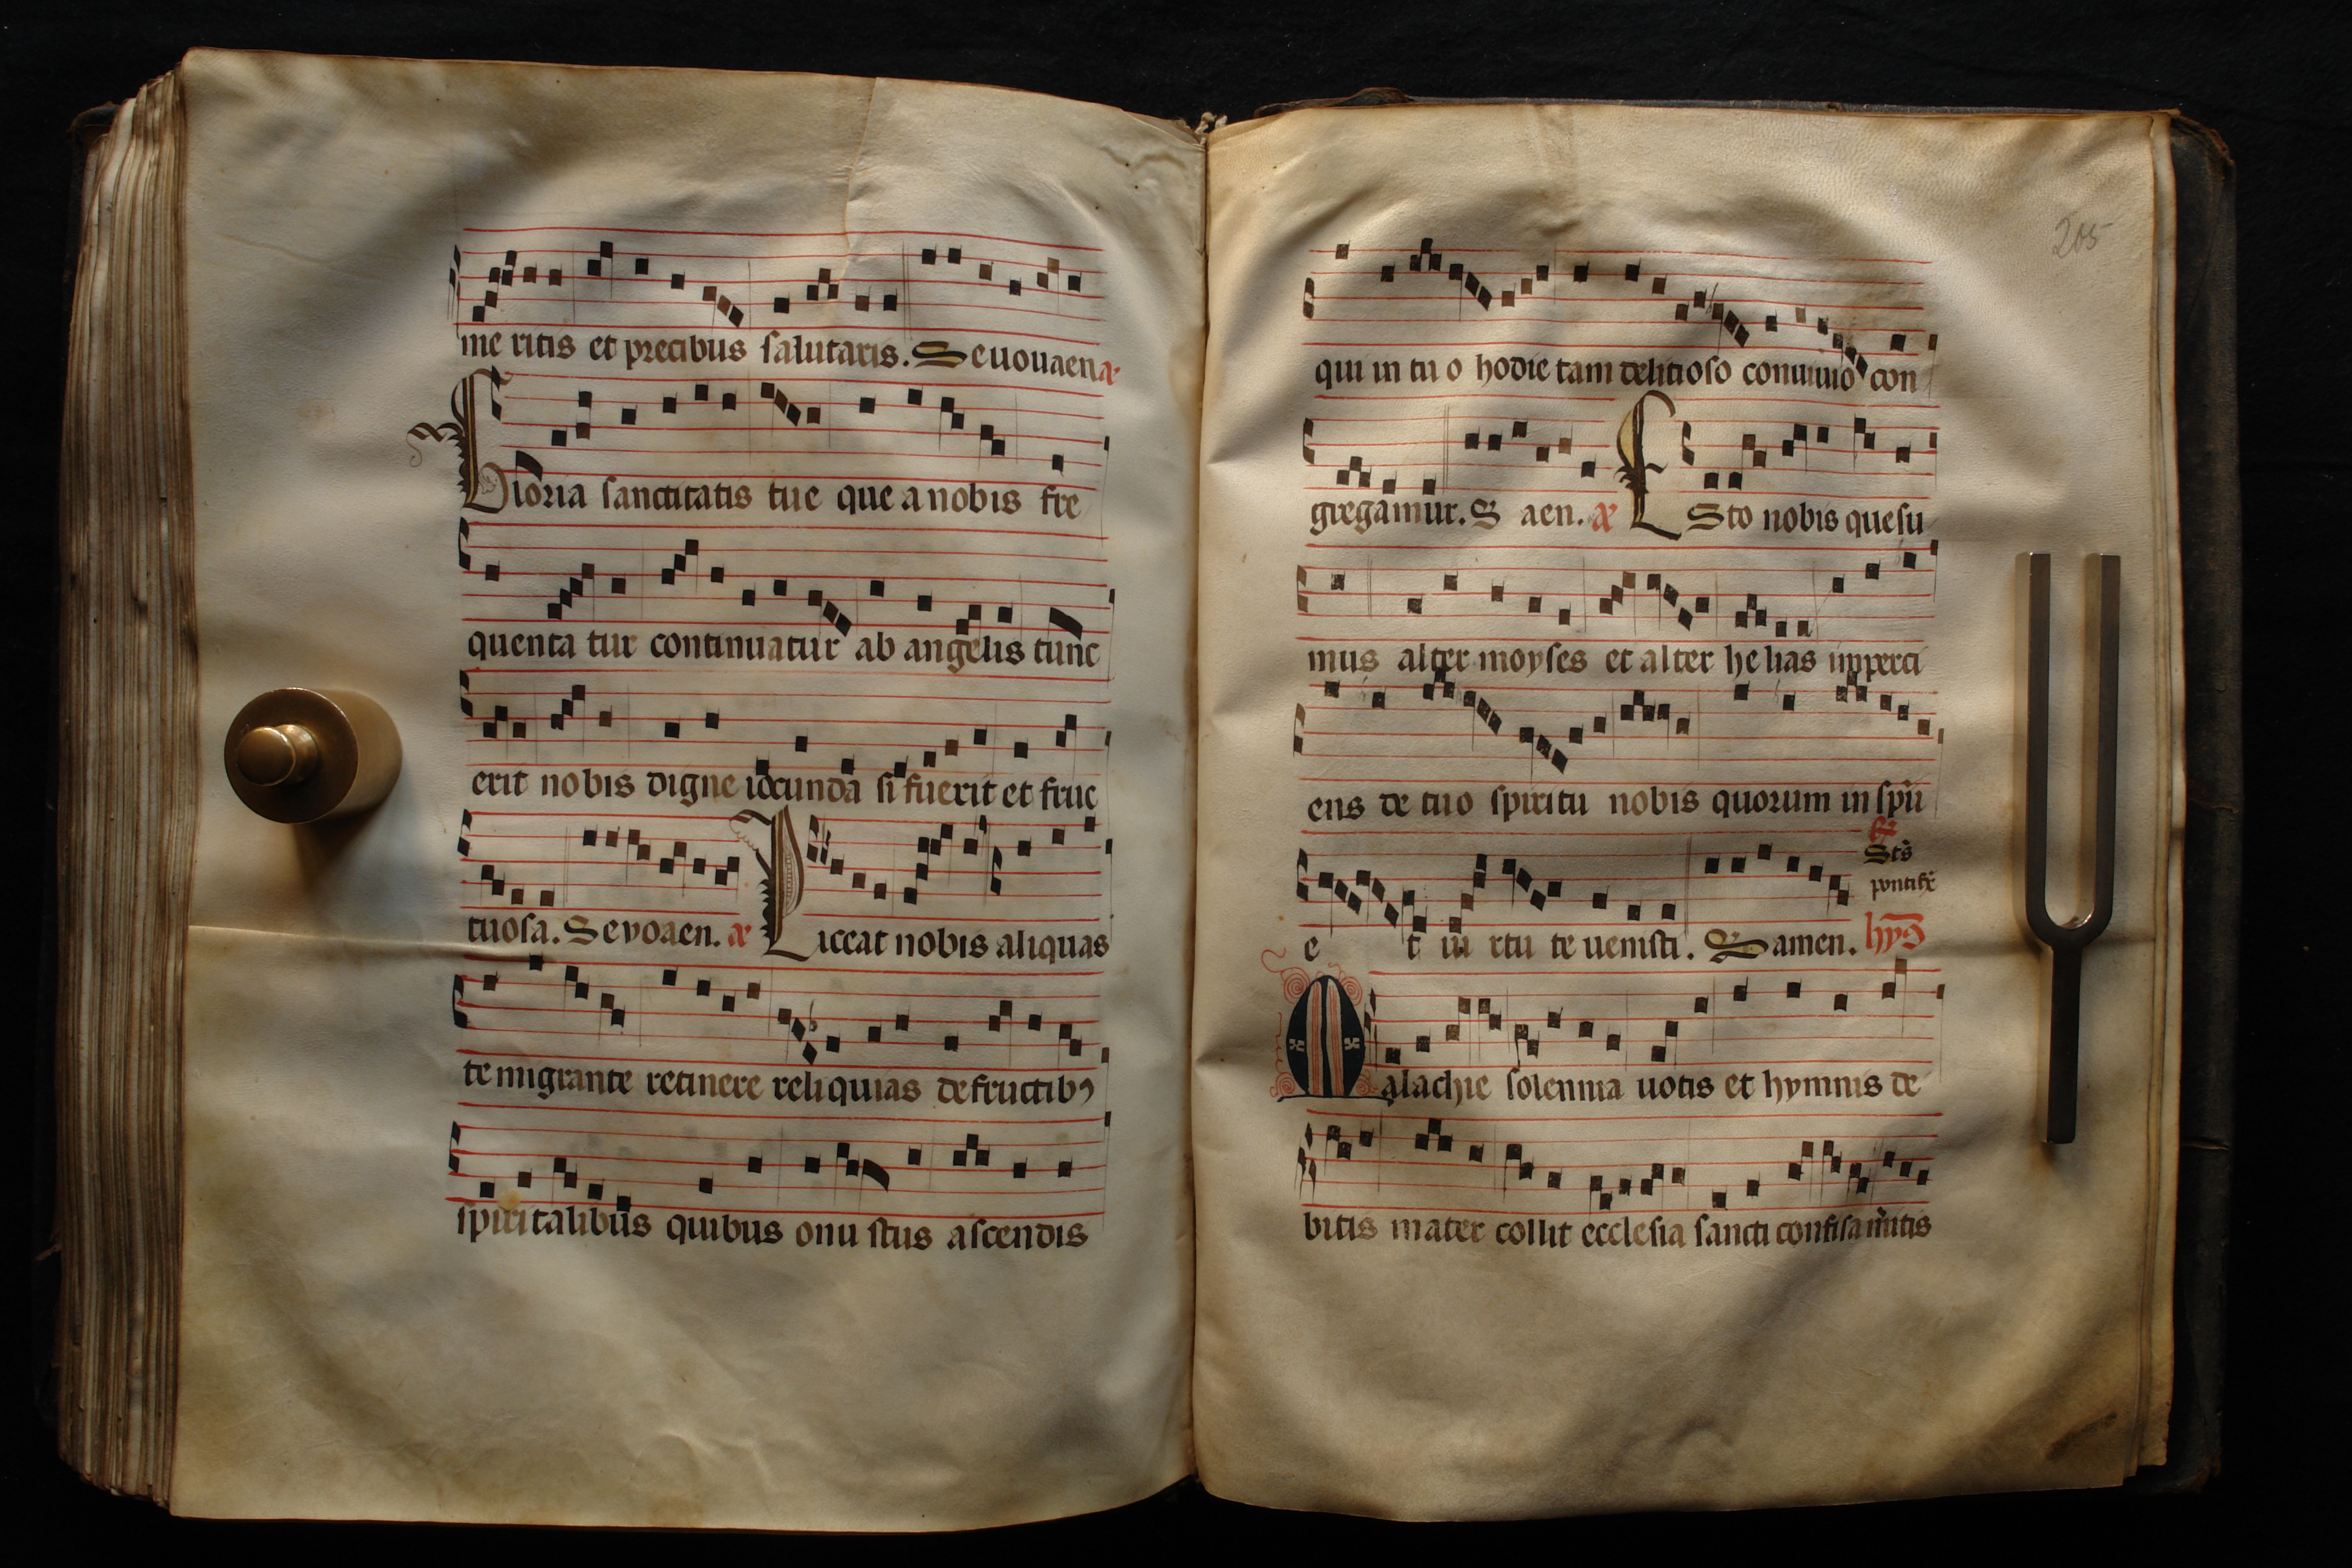 me ritis et precibus salutaris. Seuouaen a
Gloria sanctitatis tue que a nobis fre
quenta tur continuatur ab angelis tunc
erit nobis digne iocunda si fuerit et fruc
tuosa. Sevoaen. a Liceat nobis aliquas
te migrante retinere reliquias de fructibꝰ
spiritalibus quibus onu stus ascendis
205
qui in tu o hodie tam delitioso conuiuio con
gregamur. S aen. a Esto nobis quesu
mus alter moyses et alter he lias imperti
ens de tuo spiritu nobis quorum in spū
Stš
pontifx
e t in rtu te uenisti. S amen. hyꝰ
Malachie solennia uotis et hymnis de
bitis mater collit ecclesia sancti